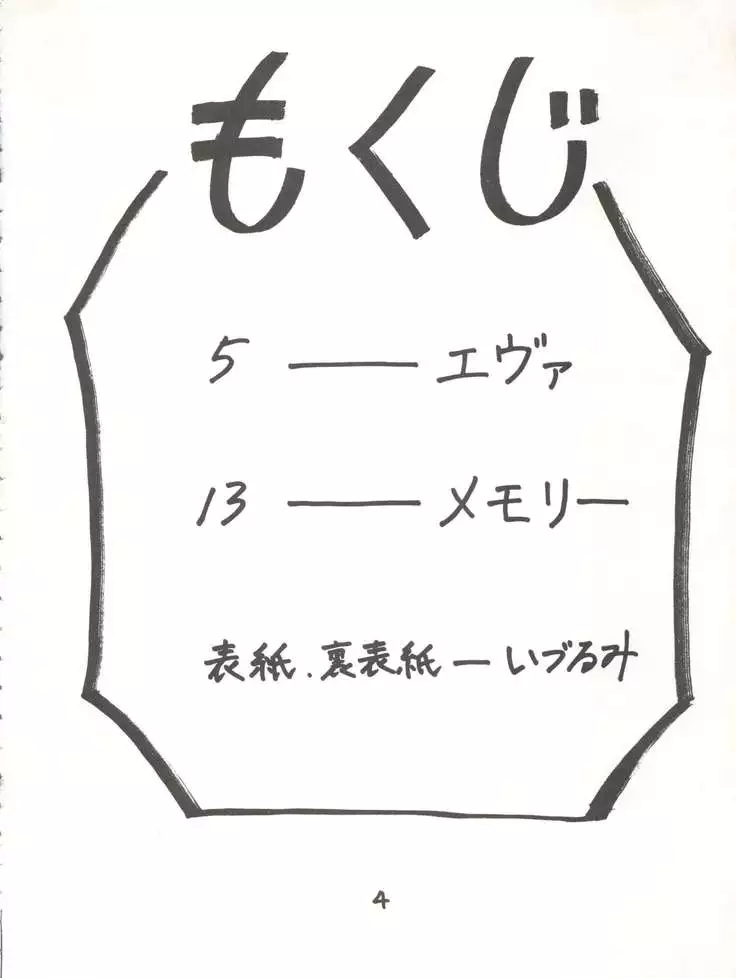 もくじ
5 — エヴァ
13 — メモリー
表紙.裏表紙 — いづるみ
4